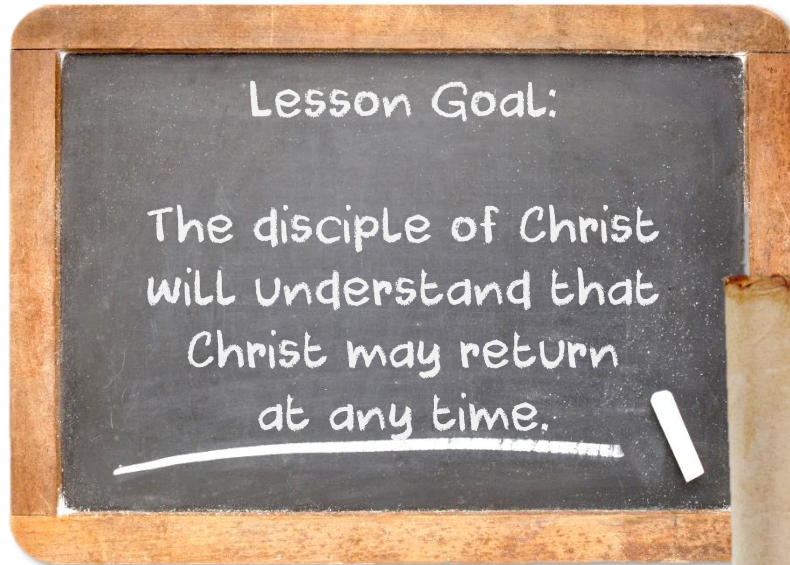 Lesson Goal:
The disciple of Christ
will understand that
Christ may return
at any time.